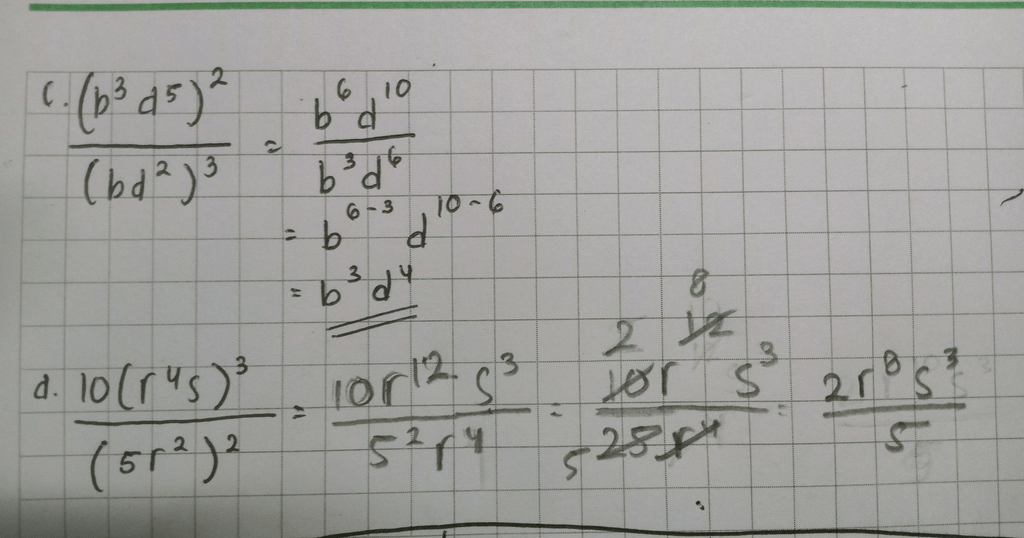 c. (b³d⁵)² / (bd²)³ = b⁶d¹⁰ / b³d⁶
= b⁶⁻³ d¹⁰⁻⁶
= b³d⁴
d. 10(r⁴s)³ / (5r²)² = 10r¹²s³ / 5²r⁴ = 2 10r 8 12 s³ / 5 25r⁴ = 2r⁸s³ / 5